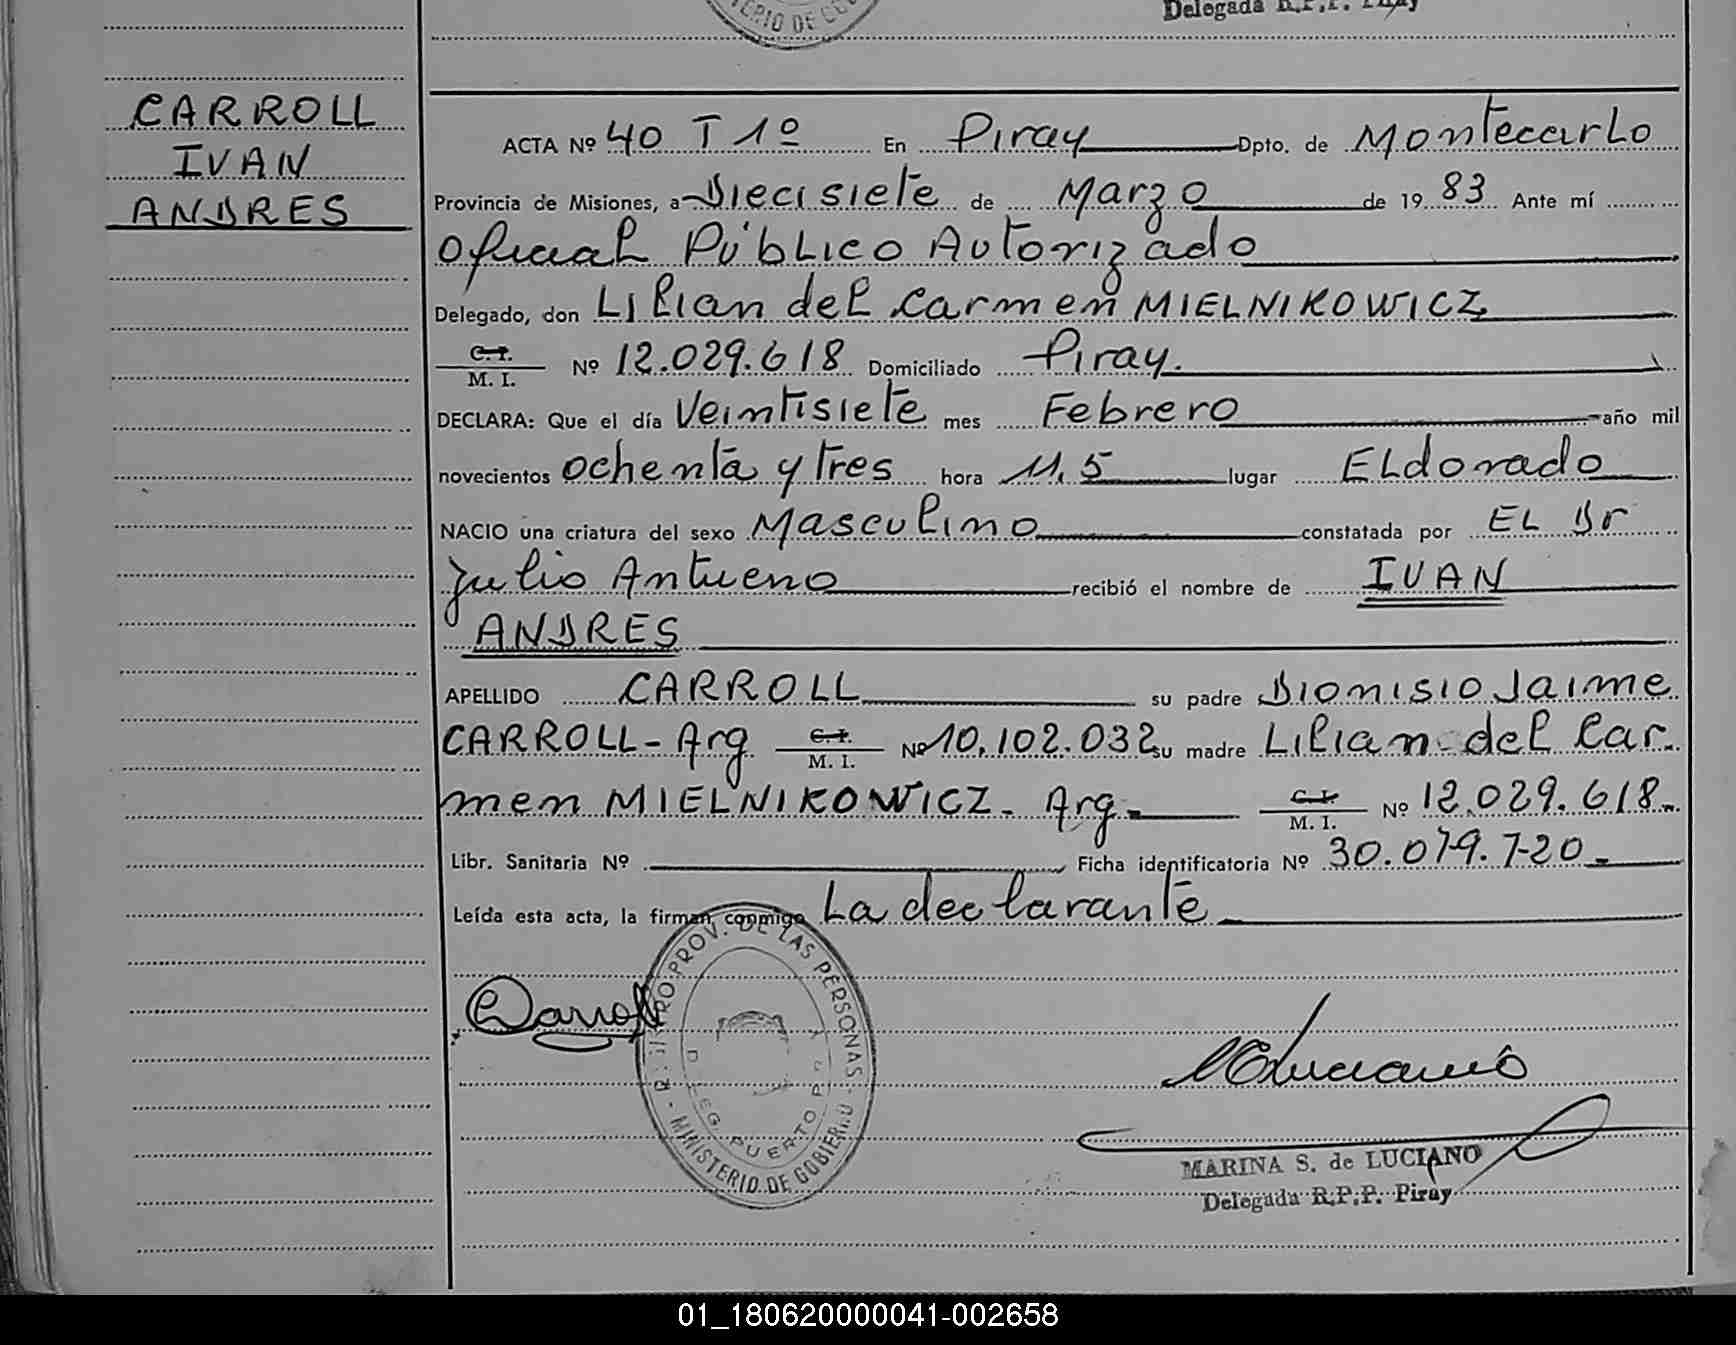 TERIO DE GOB
Delegada R.P.P. Piray
CARROLL
IVAN
ANDRES
ACTA Nº 40 T 1º En Piray Dpto. de Montecarlo
Provincia de Misiones, a Diecisiete de Marzo de 19 83 Ante mí
Oficial Público Autorizado
Delegado, don Lilian del Carmen MIELNIKOWICZ
C.I. M. I. Nº 12.029.618 Domiciliado Piray.
DECLARA: Que el día Veintisiete mes Febrero año mil
novecientos ochenta y tres hora 11,5 lugar ELdorado
NACIO una criatura del sexo Masculino constatada por EL Dr
Julio Antueno recibió el nombre de IVAN
ANDRES
APELLIDO CARROLL su padre Dionisio Jaime
CARROLL - Arg C.I. M. I. Nº 10.102.032 su madre Lilian del Car
men MIELNIKOWICZ - Arg - C.I. M. I. Nº 12.029.618 -
Libr. Sanitaria Nº Ficha identificatoria Nº 30.079.720 -
Leída esta acta, la firman conmigo La declarante
REGISTRO PROV. DE LAS PERSONAS - MINISTERIO DE GOBIERNO
DELEG. PUERTO PIRAY
MARINA S. de LUCIANO
Delegada R.P.P. Piray
01_180620000041-002658